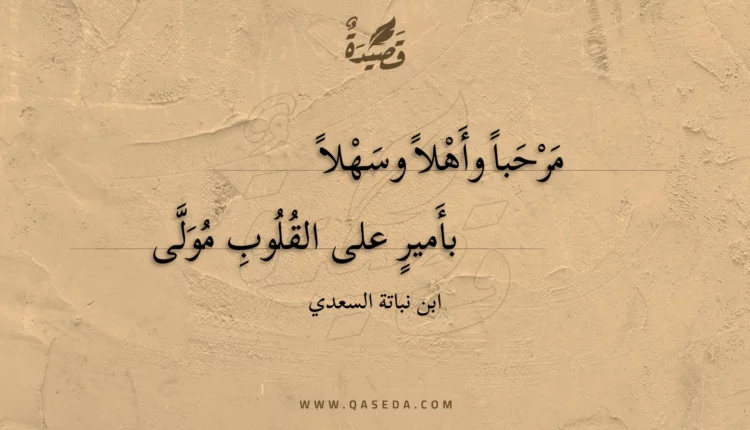 قَصِيْدَةٌ
مَرْحَباً وأَهْلاً وسَهْلاً
بأَميرٍ على القُلُوبِ مُوَلَّى
ابن نباتة السعدي
WWW.QASEDA.COM